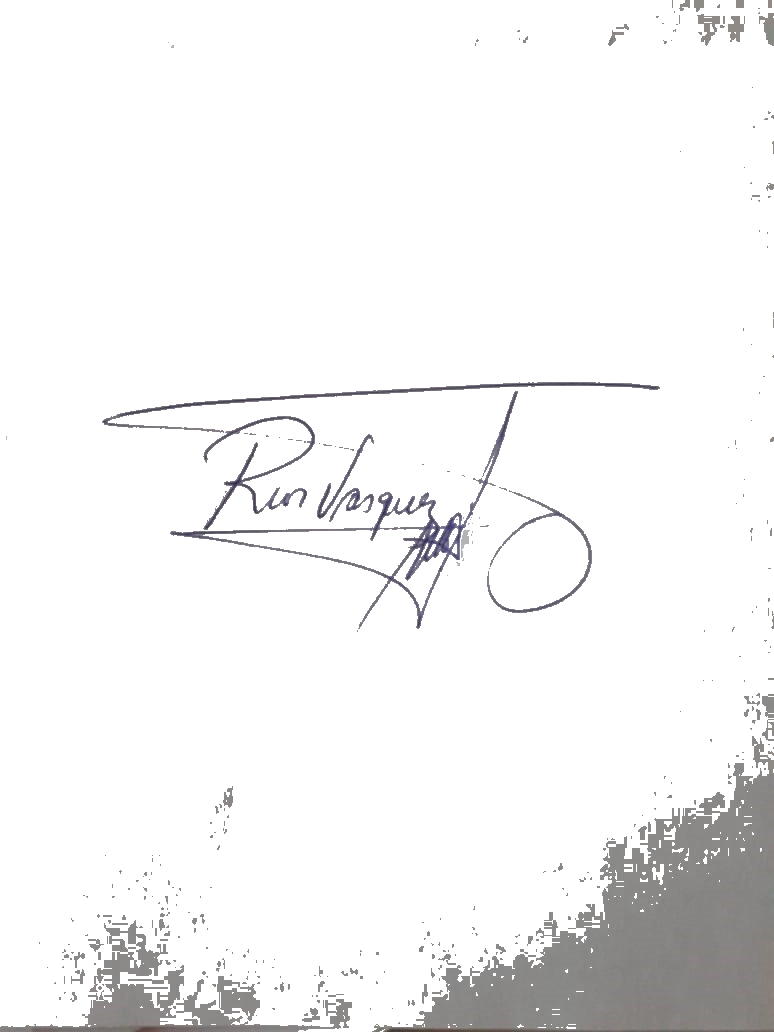 Rios Vasquez